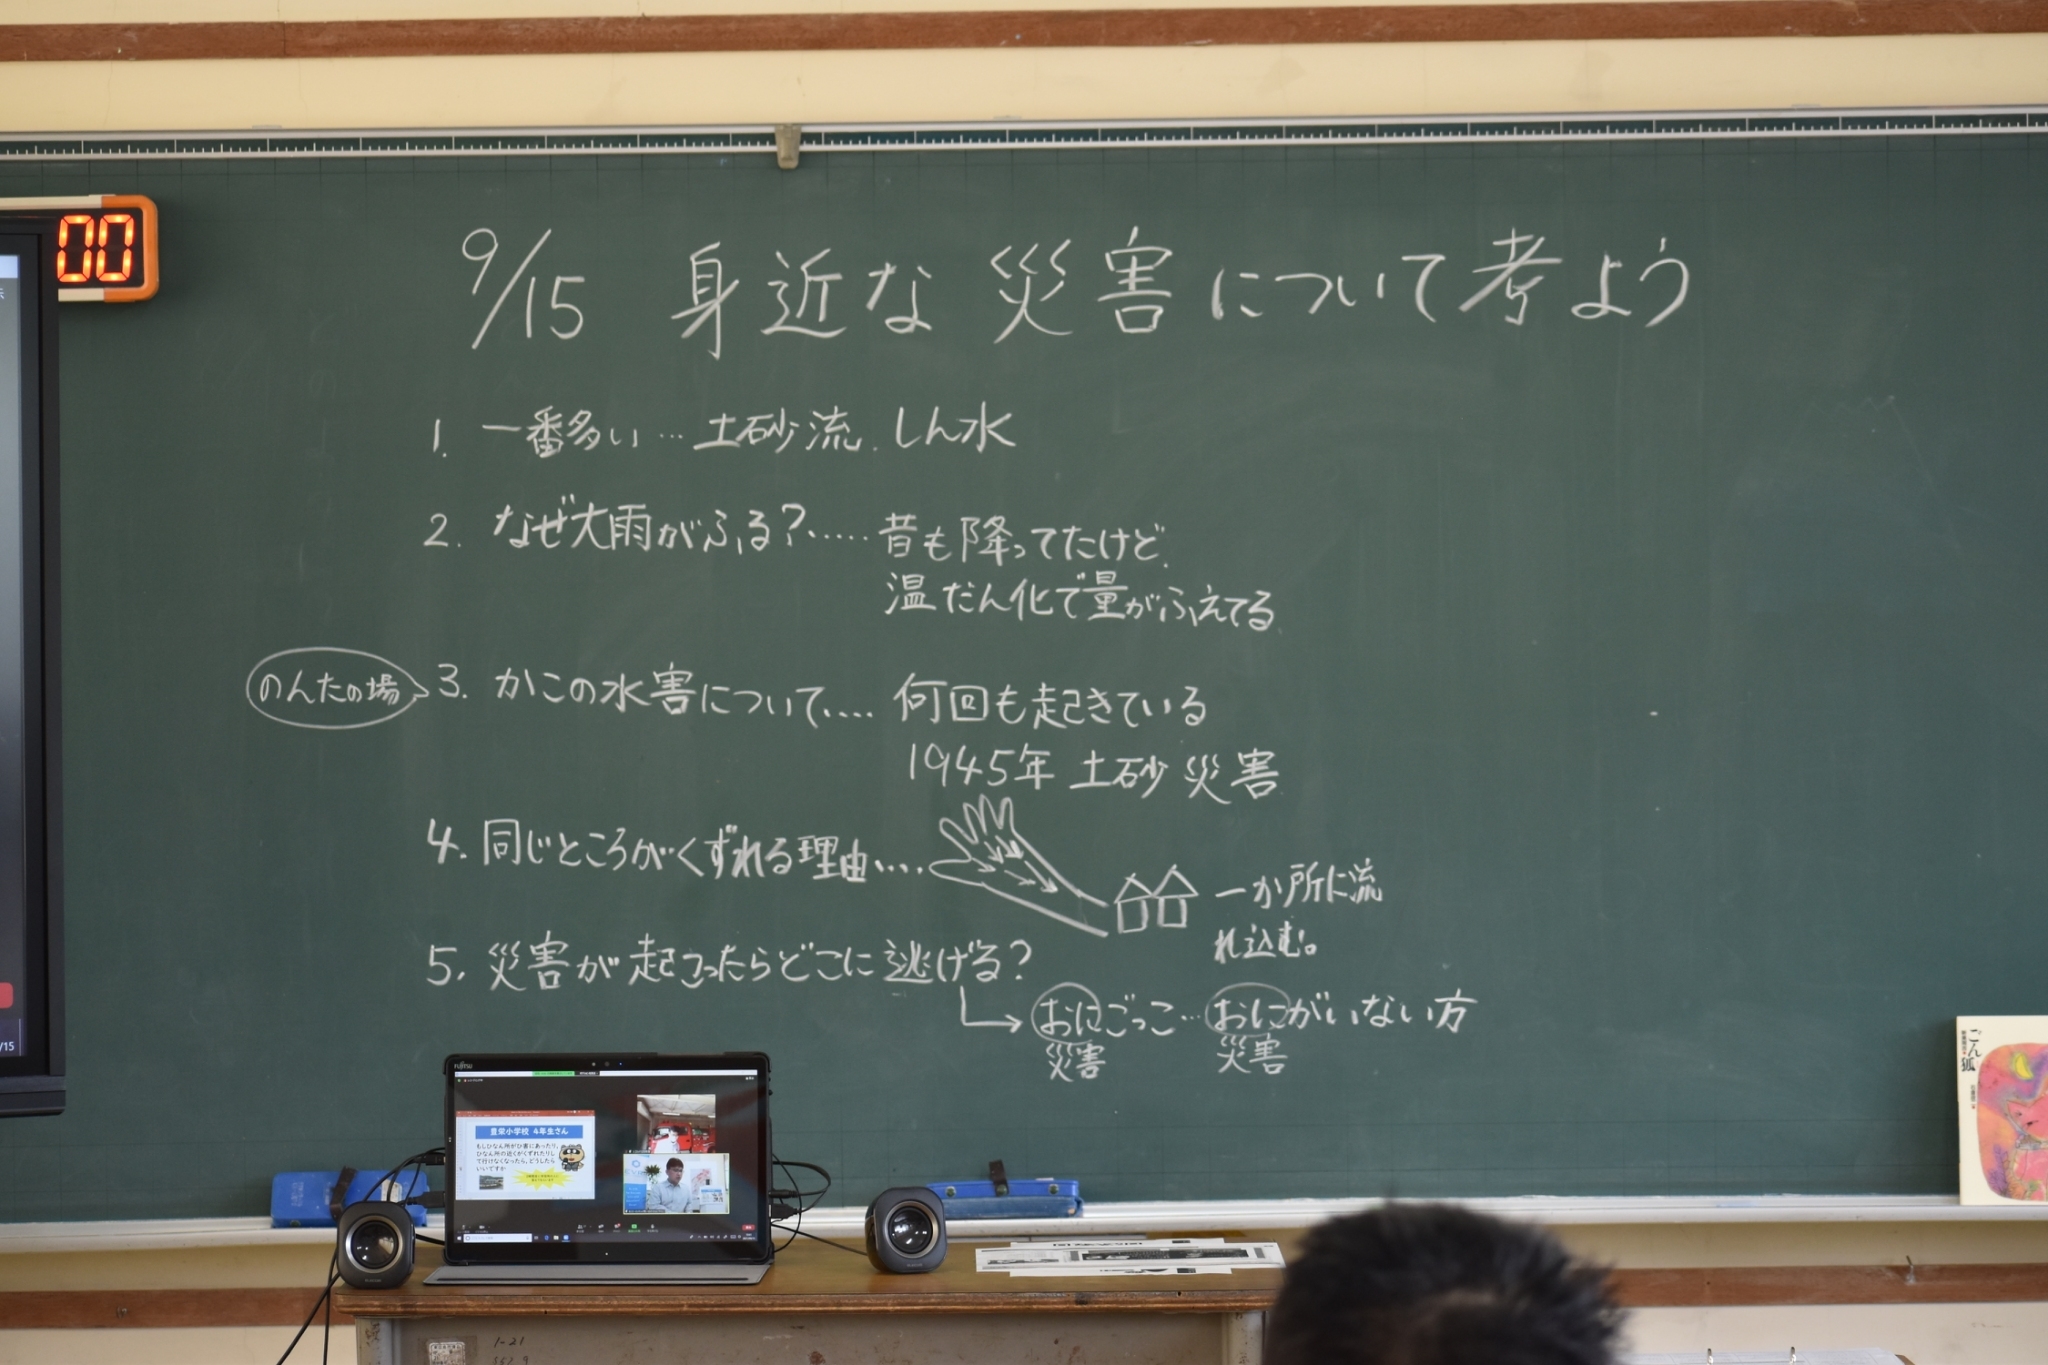 00
9/15 身近な災害について考よう
1. 一番多い…土砂流、しん水
2. なぜ大雨がふる?……昔も降ってたけど、
温だん化で量がふえてる
のんたの場
3. かこの水害について…. 何回も起きている
1945年 土砂災害
4. 同じところがくずれる理由….
一か所に流
れ込む。
5. 災害が起こったらどこに逃げる?
おにごっこ…おにがいない方
災害 災害
/15
FUJITSU
豊栄小学校 4年生さん
もしひなん所がひ害にあったり、
ひなん所の近くがくずれたりし
て行けなくなったら、どうしたら
いいですか
ごん狐
1-21